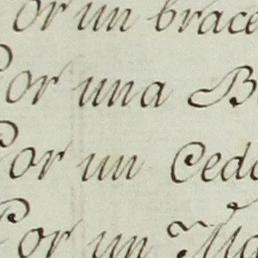 Por un brace
Por una B
Por un Ceda
Por un Ma